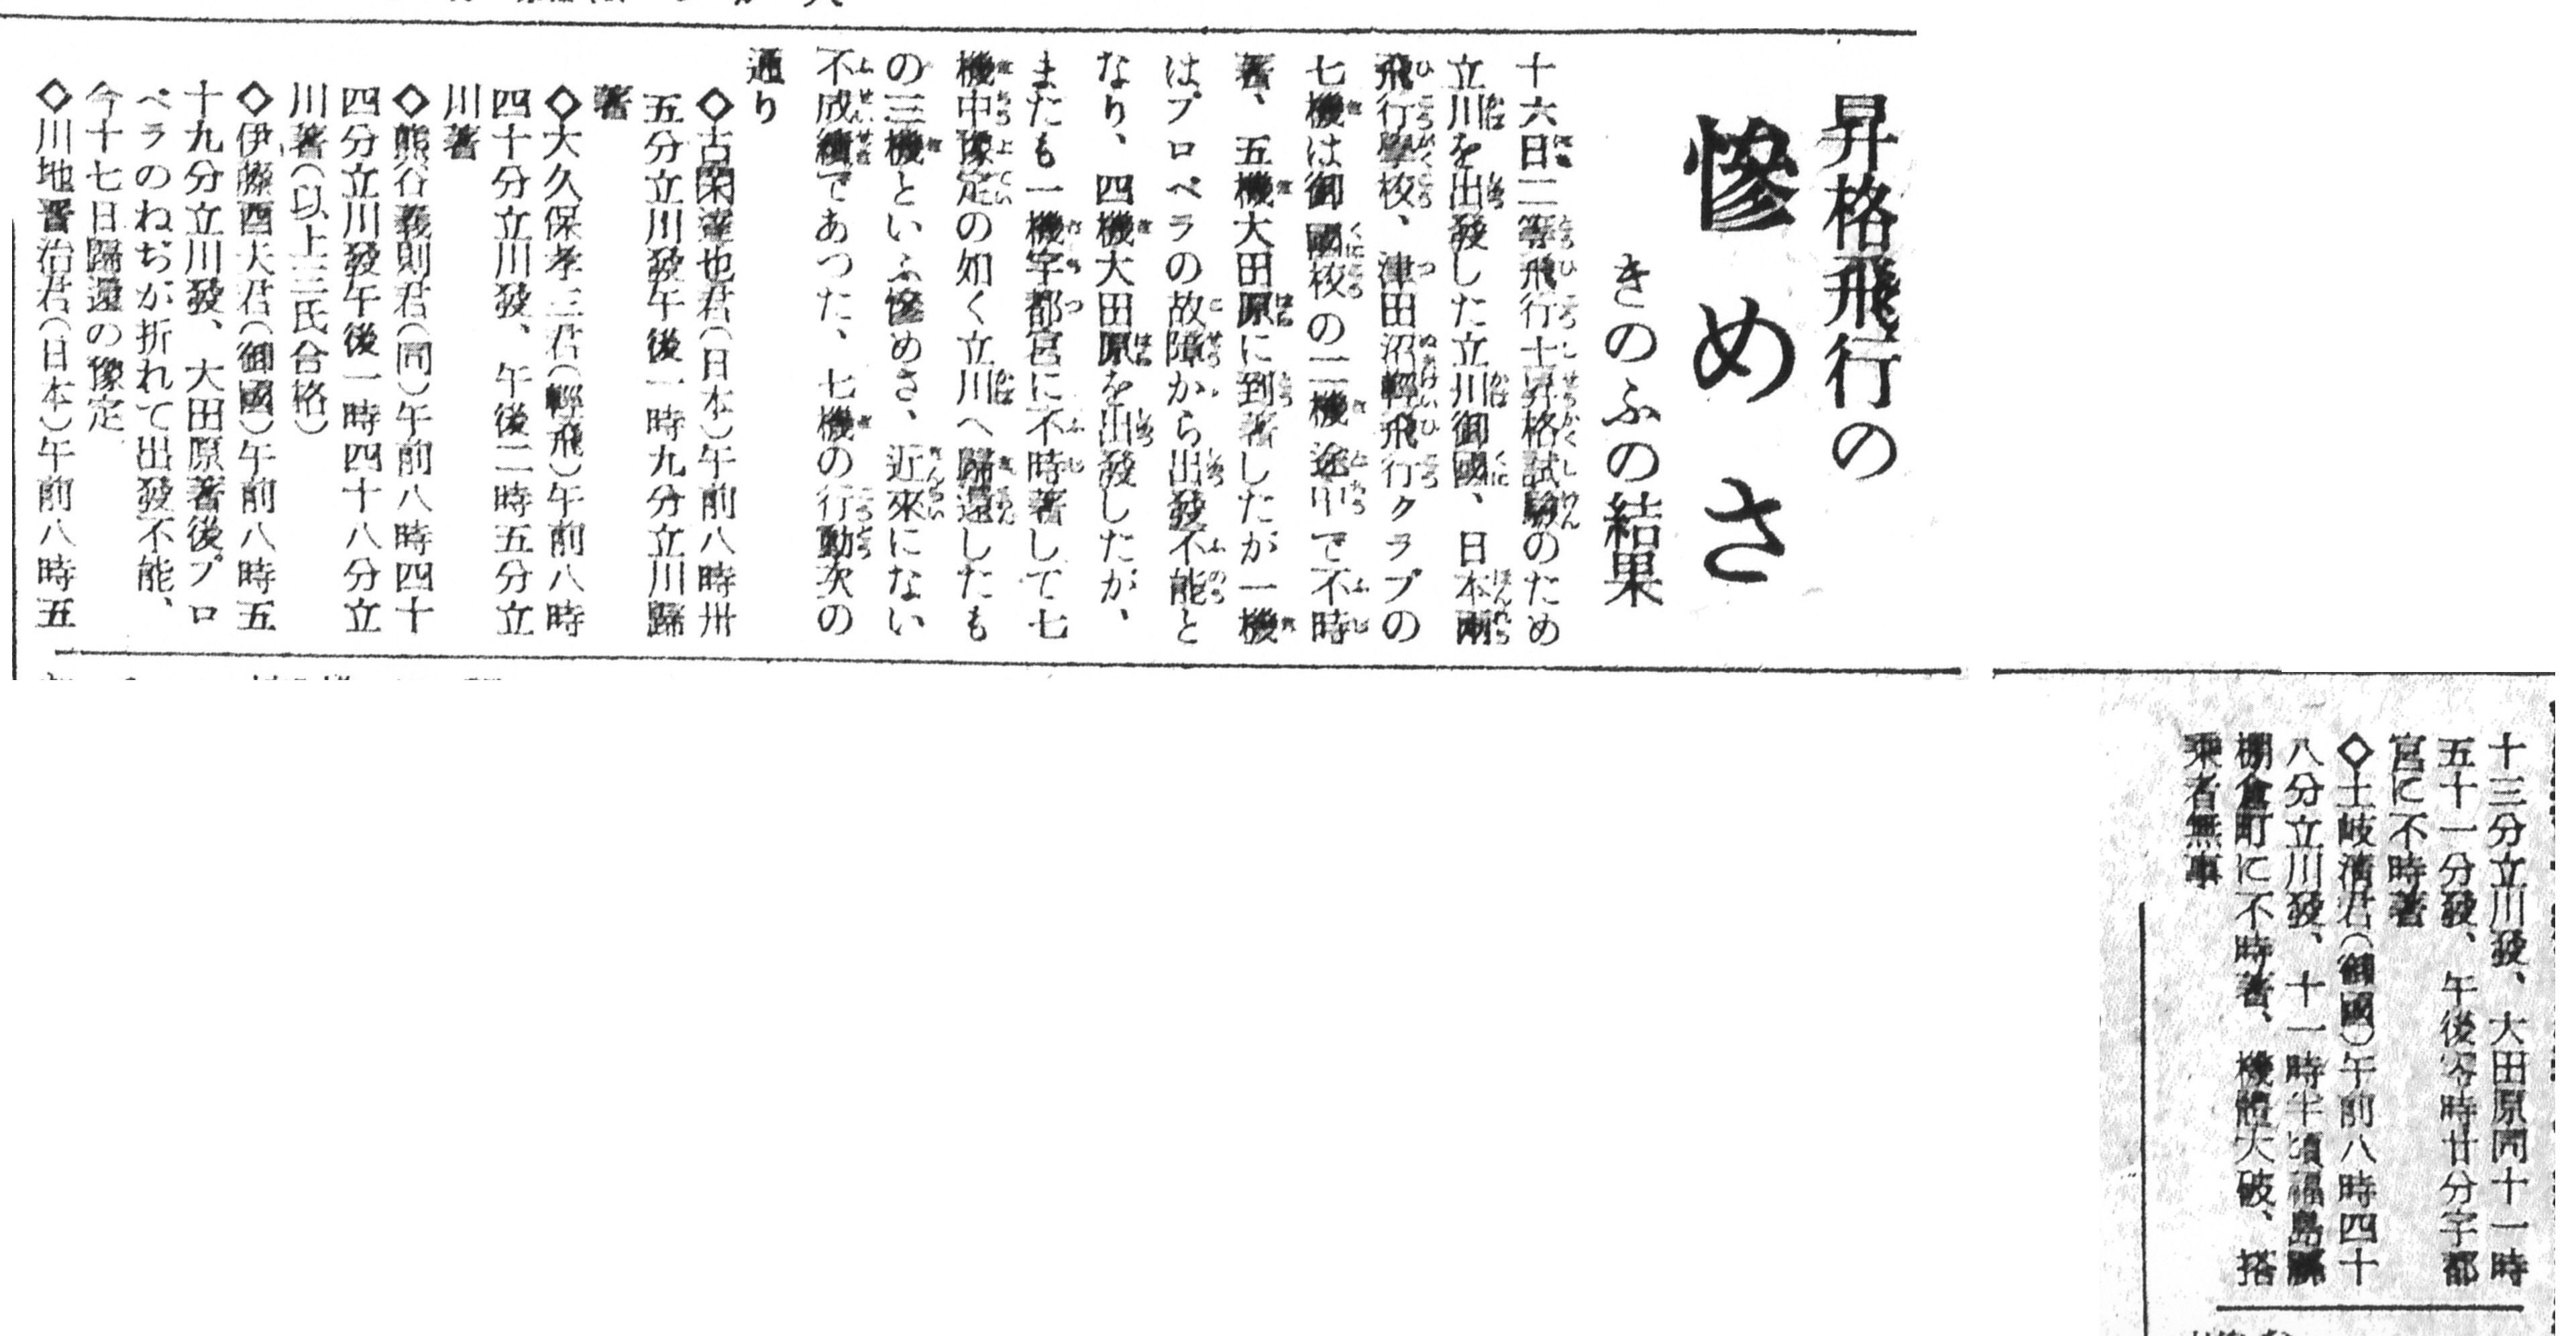 昇格飛行の
惨めさ
きのふの結果
十六日二等飛行士昇格試驗のため
立川を出發した立川御國、日本兩
飛行學校、津田沼輕飛行クラブの
七機は御國校の二機途中で不時
著、五機大田原に到著したが一機
はプロペラの故障から出發不能と
なり、四機大田原を出發したが、
またも一機宇都宮に不時著して七
機中豫定の如く立川へ歸還したも
の三機といふ惨めさ、近來にない
不成績であつた、七機の行動次の
通り
◇古閑達也君（日本）午前八時卅
五分立川發午後一時九分立川歸
著
◇大久保孝三君（輕飛）午前八時
四十分立川發、午後二時五分立
川著
◇熊谷義則君（同）午前八時四十
四分立川發午後一時四十八分立
川著（以上三氏合格）
◇伊藤酉夫君（御國）午前八時五
十九分立川發、大田原著後プロ
ペラのねぢが折れて出發不能、
今十七日歸還の豫定
◇川地晋治君（日本）午前八時五
十三分立川發、大田原同十一時
五十一分發、午後零時廿分宇都
宮に不時著
◇土岐清君（御國）午前八時四十
八分立川發、十一時半頃福島縣
棚倉町に不時著、機體大破、搭
乘者無事